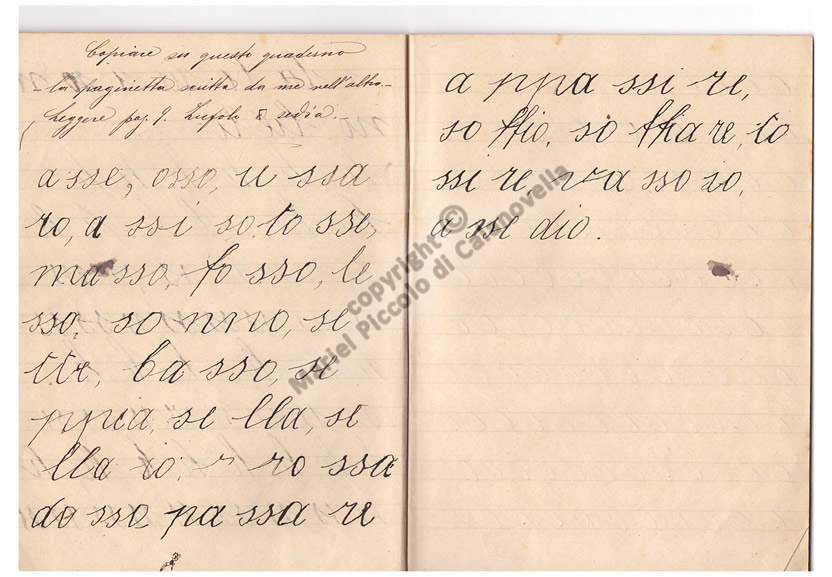 Copiare su questo quaderno
la paginetta scritta da me nell'altro.
Leggere pag. 9. Zufolo e sedia.
a sse, osso, u ssa
ro, a ssi so. to sse,
ma sso, fo sso, le
sso, so nno, se
tte, ba sso, se
ppia, se lla, se
lla io, ro ssa
do sso pa ssa re
a ppa ssi re,
so ffio, so ffia re, to
ssi re, va sso io,
a sse dio.
copyright ©
Mariel Piccolo di Calanovella